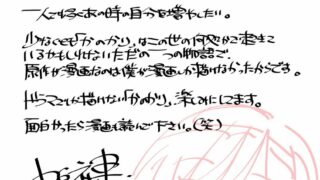 一人でも多くあの時の自分を増やしたい。
少なくとも「かのかり」はこの世の何処かで起きて
いるかもしれないただの一つの物語で、
原作が漫画なのは僕が漫画しか描けなかったからです。
ドラマでしか描けない「かのかり」、楽しみにしてます。
面白かったら漫画も読んで下さい。(笑)